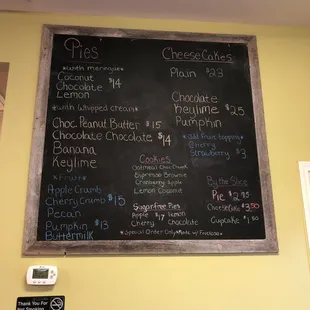 Pies
*with meringue*
Coconut
Chocolate $14
Lemon
*with whipped cream*
Choc. Peanut Butter $15
Chocolate Chocolate $14
Banana
Keylime
*Fruit*
Apple Crumb
Cherry Crumb $15
Pecan
Pumpkin $13
Buttermilk
CheeseCakes
Plain $23
Chocolate
Keylime $25
Pumpkin
*add fruit topping
Cherry
Strawberry $3
Cookies
Oatmeal Choc Chunk
Espresso Brownie
Cranberry Apple
Lemon Coconut
Sugarfree Pies
Apple $17 Lemon
Cherry Chocolate
*Special Order Only*
By the Slice
Pie $2.95
Cheesecake $3.50
Cupcake $1.50
Thank You For
Not Smoking